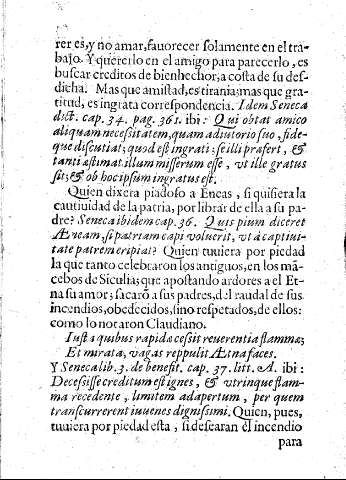 rer es, y no amar, fauorecer solamente en el tra-
bajo. Y quererlo en el amigo para parecerlo, es
buscar creditos de bienhechor; a costa de su des-
dicha. Mas que amistad, es tirania; mas que gra-
titud, es ingrata correspondencia. Idem Seneca
dict. cap. 34. pag. 361. ibi: Qui obtat amico
aliquam necessitatem, quam adiutorio suo, fide-
que discutiat; quod est ingrati: se illi præfert, &
tanti æstimat illum misserum esse, vt ille gratus
sit; & ob hoc ipsum ingratus est.
Quien dixera piadoso a Eneas, si quisiera la
cautiuidad de la patria, por librar de ella a su pa-
dre? Seneca ibidem cap. 36. Quis pium diceret
Æneam, si patriam capi voluerit, vt à captiui-
tate patrem eripiat? Quien tuuiera por piedad
la que tanto celebraron los antiguos, en los mã-
cebos de Siculia; que apostando ardores a el Et-
na su amor; sacarõ a sus padres, dèl raudal de sus
incendios, obedecidos, sino respetados, de ellos:
como lo notaron Claudiano.
Iusta quibus rapida cessit reuerentia flamma;
Et mirata, vagas reppulit Ætna faces.
Y Seneca lib. 3. de benefit. cap. 37. litt. A. ibi:
Decessisse creditum est ignes, & vtrinque flam-
ma recedente, limitem adapertum, per quem
transcurrerent iuuenes dignissimi. Quien, pues,
tuuiera por piedad esta, si desearan el incendio
para